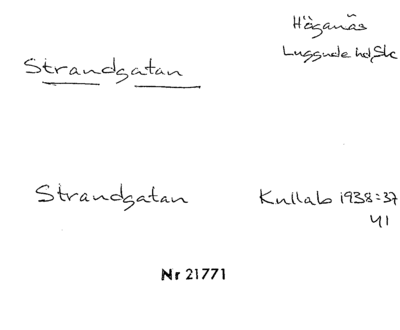 Höganäs
Luggude hd, Sk
Strandgatan
Strandgatan
Kullab 1938:37
41
Nr 21771